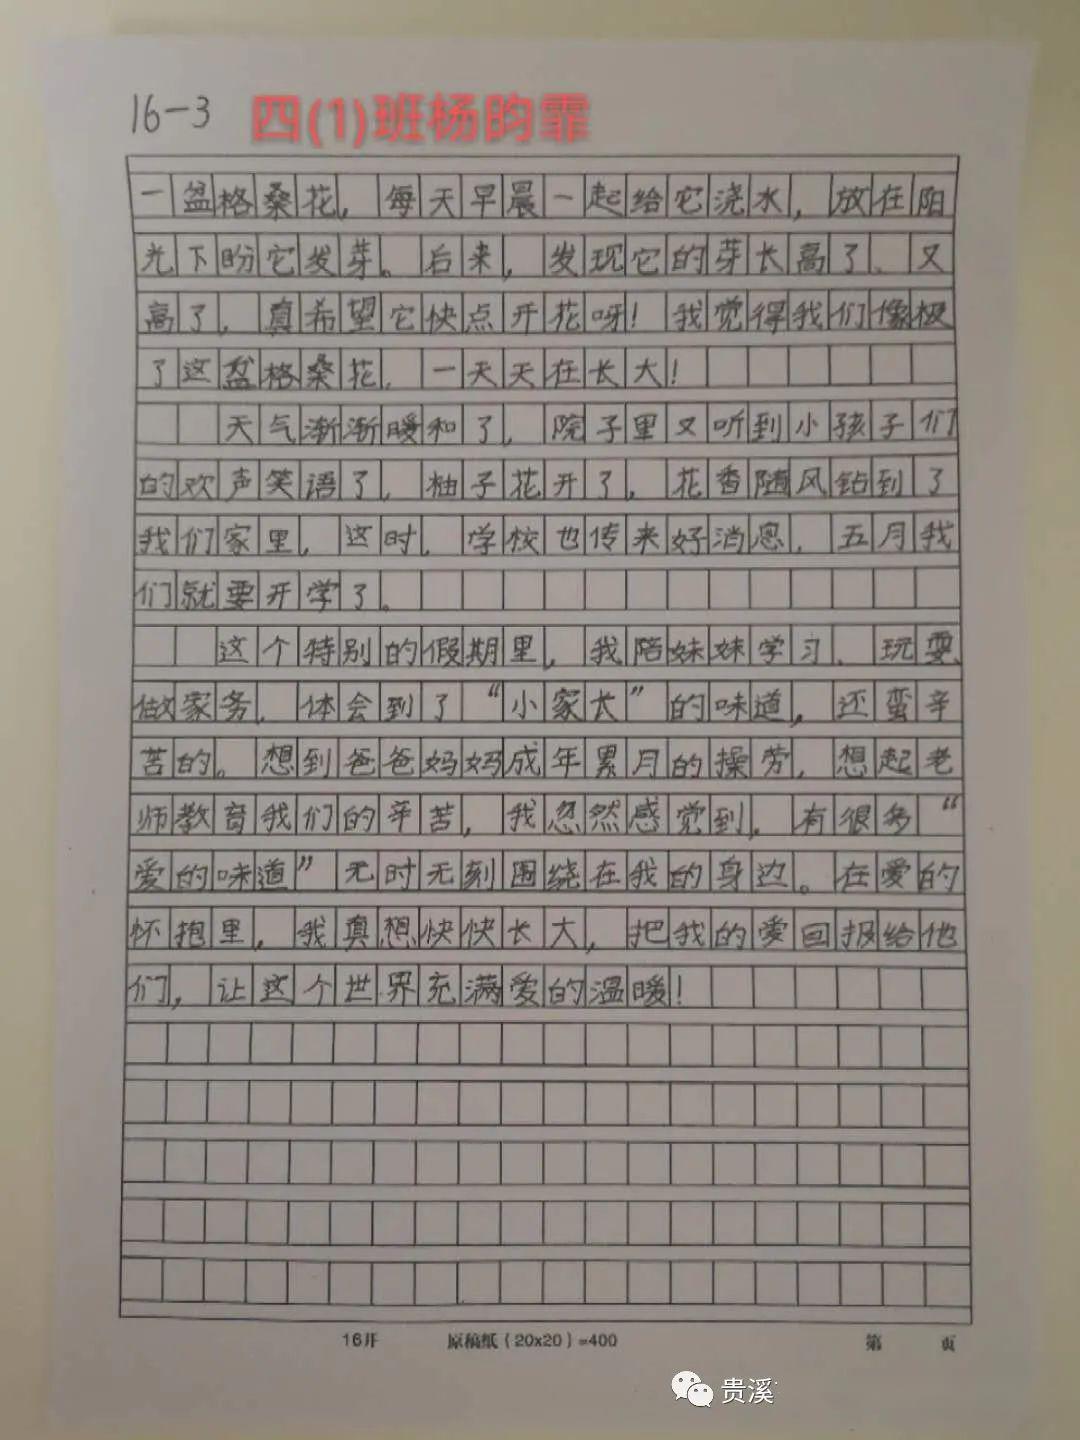 16-3 四(1)班杨昀霏
一盆格桑花，每天早晨一起给它浇水，放在阳
光下盼它发芽。后来，发现它的芽长高了、又
高了，真希望它快点开花呀！我觉得我们像极
了这盆格桑花，一天天在长大！
天气渐渐暖和了，院子里又听到小孩子们
的欢声笑语了，柚子花开了，花香随风钻到了
我们家里，这时，学校也传来好消息，五月我
们就要开学了。
这个特别的假期里，我陪妹妹学习、玩耍、
做家务，体会到了“小家长”的味道，还蛮辛
苦的。想到爸爸妈妈成年累月的操劳，想起老
师教育我们的辛苦，我忽然感觉到，有很多“
爱的味道”无时无刻围绕在我的身边。在爱的
怀抱里，我真想快快长大，把我的爱回报给他
们，让这个世界充满爱的温暖！
16开 原稿纸（20x20）=400 第 页
贵溪